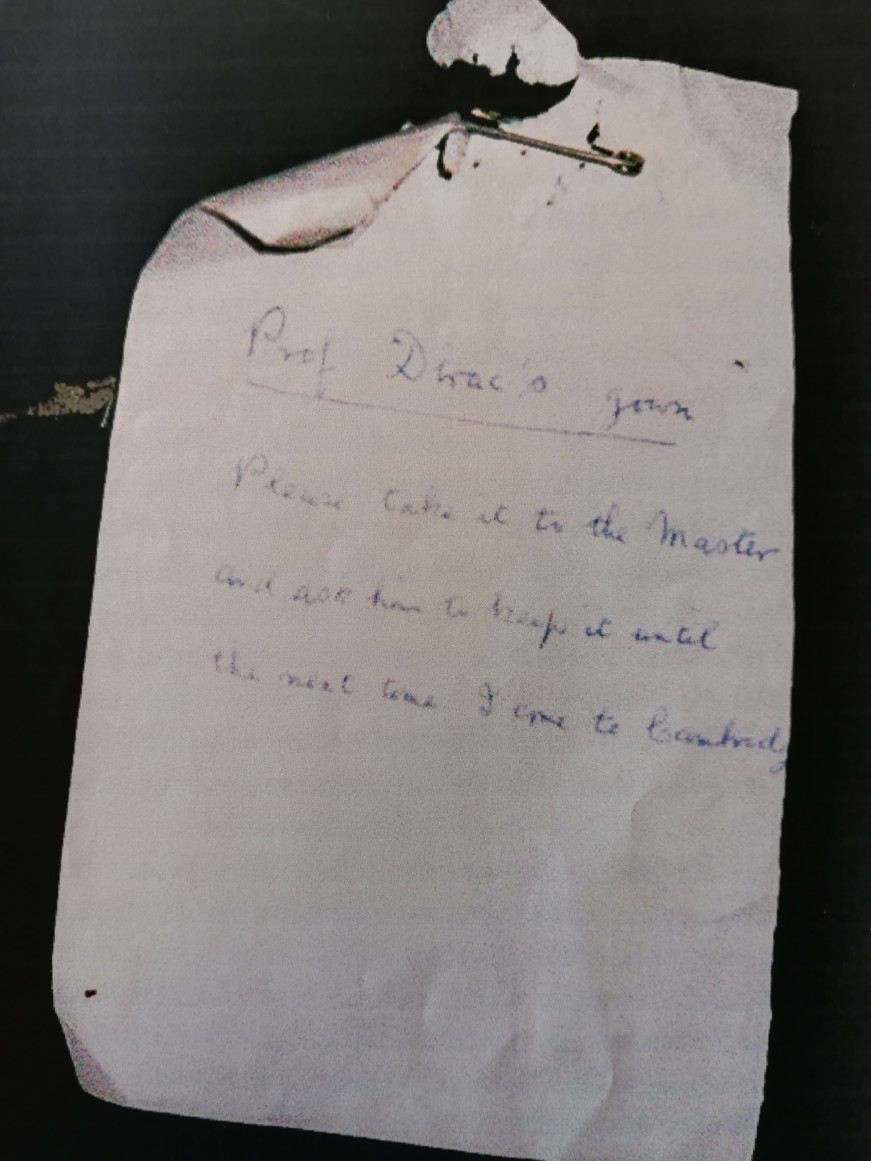 Prof Dirac's gown
Please take it to the Master
and ask him to keep it until
the next time I come to Cambridg